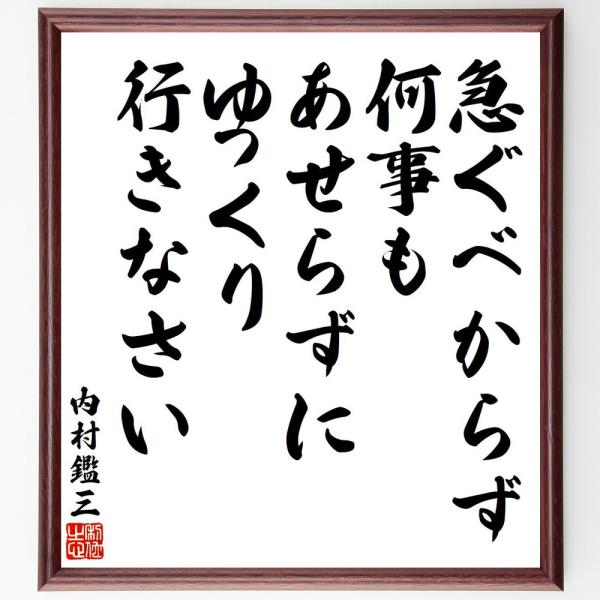 急ぐべからず
何事も
あせらずに
ゆっくり
行きなさい
内村鑑三